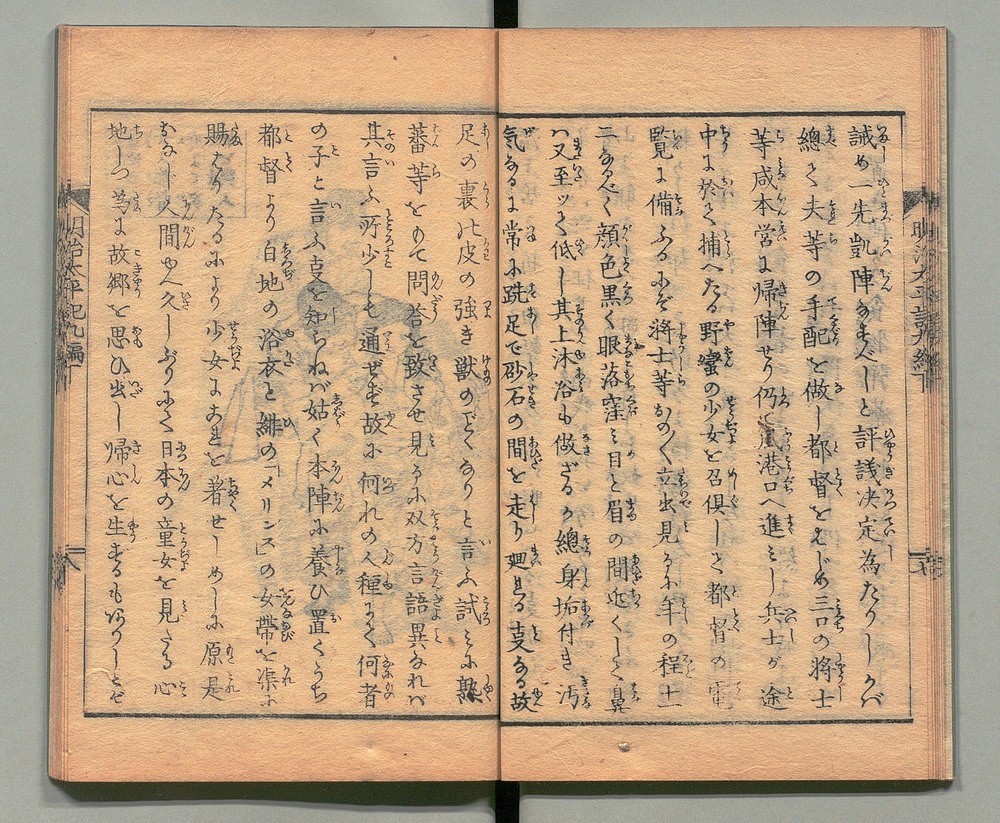 誡め一先凱陣なすべしと評議決定為たりしかバ
總て夫等の手配を做し都督をはじめ三口の将士
等咸本営に帰陣せり仍て風港口へ進ミし兵士が途
中に於て捕へたる野蠻の少女を召倶して都督の電
覧に備ふるにぞ将士等おの〱立出見るに年の程十二
三なるべく顔色黒く眼落窪ミ目と眉の間近くして鼻
ハ又至ッて低し其上沐浴も做ざるか總身垢付き汚
気なるに常に跣足で砂石の間を走り廻る事なる故
足の裏は皮の強き獣のごくなりと言ふ試ミに熟
蕃等をもて問答を致させ見るに双方言語異なれバ
其言ふ所少しも通ぜず故に何れの人種にて何者
の子と言ふ事を知らねば姑く本陣に養ひ置くうち
都督より白地の浴衣と緋の「メリンス」の女帯を渠に
賜はりたるにより少女にこれを着せしめしに原是
おなじ人間ゆへ久しぶりにて日本の童女を見たる心
地しつ為に故郷を思ひ出し帰心を生ずるもありしとぞ
明治太平記九編下
八